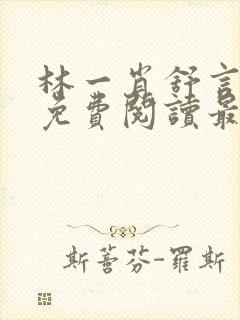 林一肖舒言
免費閱讀最
斯蒈芬-羅斯